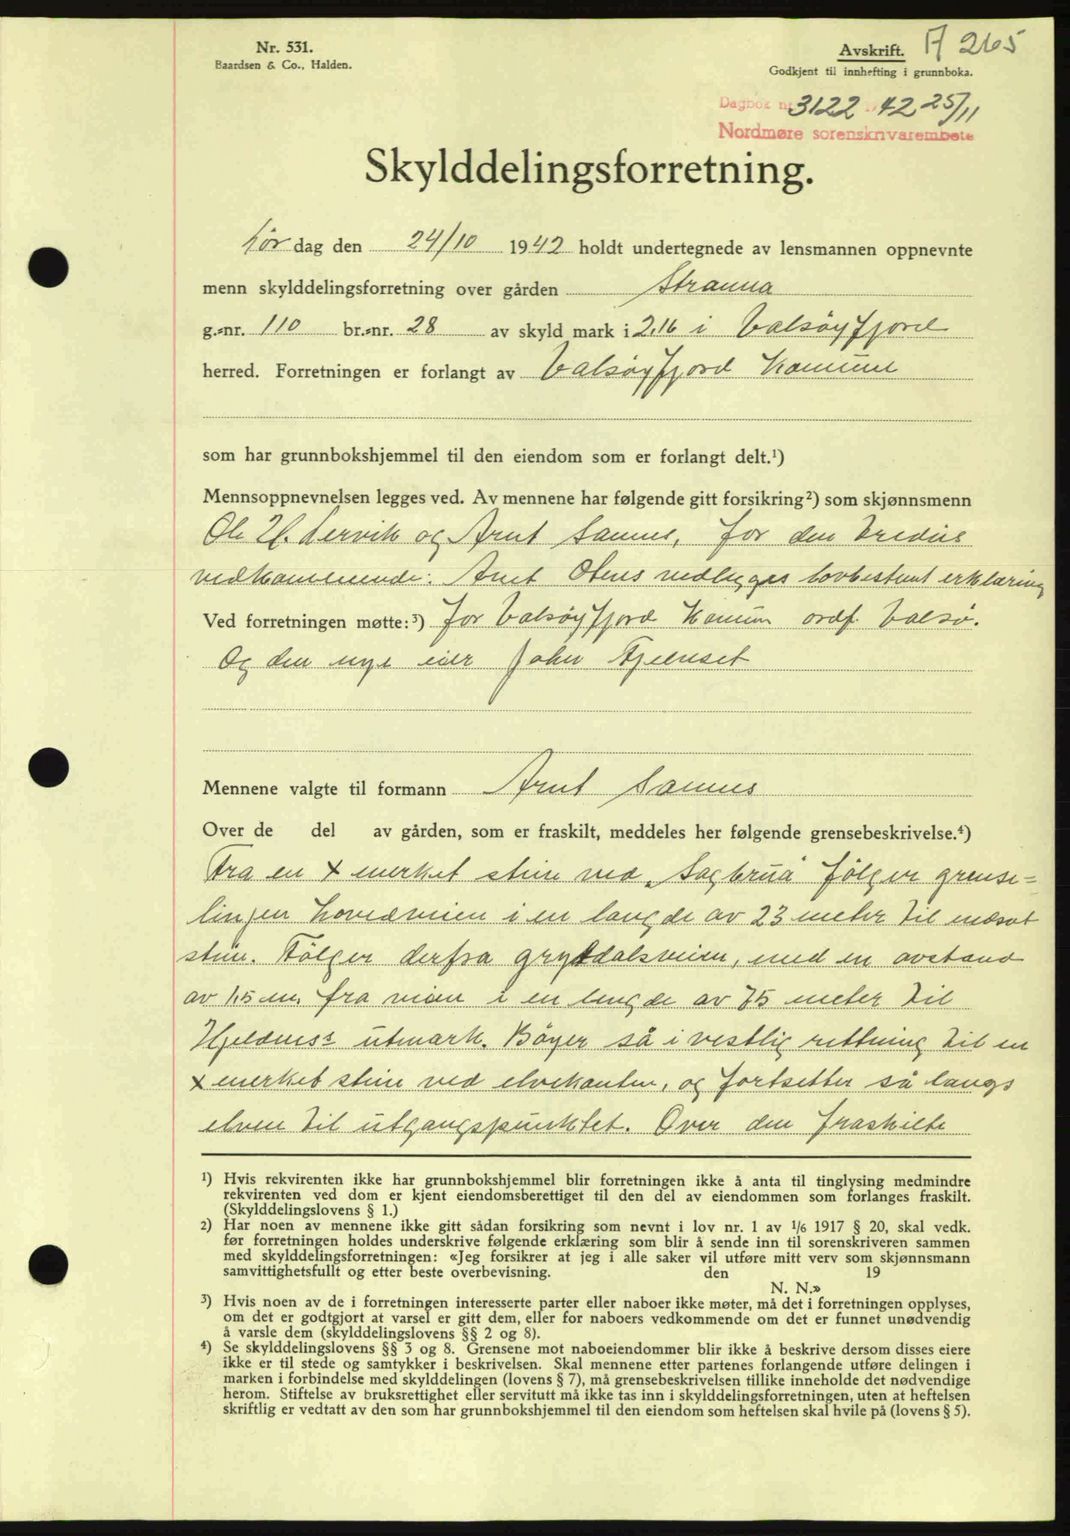 Nr. 531.
Baardsen & Co., Halden.
Avskrift. A 265
Godkjent til innhefting i grunnboka.
Dagbok nr. 3122 1942 25/11
Nordmøre sorenskrivarembete
Skylddelingsforretning.
Lør dag den 24/10 1942 holdt undertegnede av lensmannen oppnevnte
menn skylddelingsforretning over gården Stranna
g.-nr. 110 br.-nr. 28 av skyld mark i 2,16 i Valsøyfjord
herred. Forretningen er forlangt av Valsøyfjord Kommune
som har grunnbokshjemmel til den eiendom som er forlangt delt.¹)
Mennsoppnevnelsen legges ved. Av mennene har følgende gitt forsikring²) som skjønnsmenn
Ole H. Lervik og Arnt Sannes, for den tredies
vedkommende: Arnt Otnes vedlegges lovbestemt erklæring
Ved forretningen møtte:³) for Valsøyfjord Kommun ordf. Valsø.
Og den nye eier John Fjelnset
Mennene valgte til formann Arnt Sannes
Over de del av gården, som er fraskilt, meddeles her følgende grensebeskrivelse.⁴)
Fra en x merket stein ved "Sagbrua" følger grense=
linjen hovedveien i en langde av 23 meter til nedsatt
stein. Følger derfra gryddalsveien, med en avstand
av 1,5 m. fra veien i en lengde av 75 meter til
Hjeldnes's utmark. Bøyer så i vestlig rettning til en
x merket stein ved elvekanten, og fortsetter så langs
elven til utgangspunktet. Over den fraskilte
¹) Hvis rekvirenten ikke har grunnbokshjemmel blir forretningen ikke å anta til tinglysing medmindre
rekvirenten ved dom er kjent eiendomsberettiget til den del av eiendommen som forlanges fraskilt.
(Skylddelingslovens § 1.)
²) Har noen av mennene ikke gitt sådan forsikring som nevnt i lov nr. 1 av 1/6 1917 § 20, skal vedk.
før forretningen holdes underskrive følgende erklæring som blir å sende inn til sorenskriveren sammen
med skylddelingsforretningen: «Jeg forsikrer at jeg i alle saker vil utføre mitt verv som skjønnsmann
samvittighetsfullt og etter beste overbevisning. den 19
N. N.»
³) Hvis noen av de i forretningen interesserte parter eller naboer ikke møter, må det i forretningen opplyses,
om det er godtgjort at varsel er gitt dem, eller for naboers vedkommende om det er funnet unødvendig
å varsle dem (skylddelingslovens §§ 2 og 8).
⁴) Se skylddelingslovens §§ 3 og 8. Grensene mot naboeiendommer blir ikke å beskrive dersom disses eiere
ikke er til stede og samtykker i beskrivelsen. Skal mennene etter partenes forlangende utføre delingen i
marken i forbindelse med skylddelingen (lovens § 7), må grensebeskrivelsen tillike inneholde det nødvendige
herom. Stiftelse av bruksrettighet eller servitutt må ikke tas inn i skylddelingsforretningen, uten at heftelsen
skriftlig er vedtatt av den som har grunnbokshjemmel til den eiendom som heftelsen skal hvile på (lovens § 5).